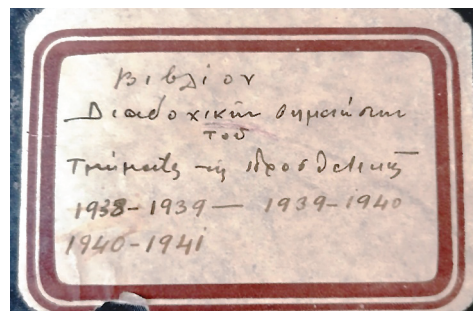 Βιβλίον
Διαδοχικῶν σημειώσεων
τοῦ
Τμήματος τῆς Προσθετικῆς
1938-1939 — 1939-1940
1940-1941